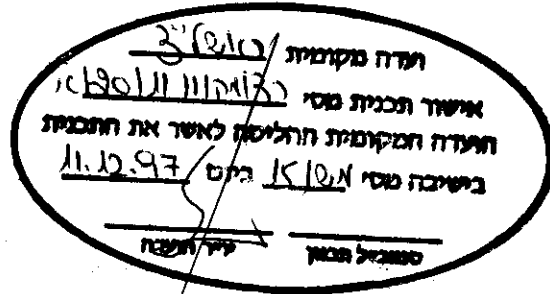 ועדה מקומית ראשל"צ
אישור תכנית מסי
הועדה המקומית החליטה לאשר את התכנית
בישיבה מסי ביום 11.12.97
סמנכ"ל תכנון יו"ר הועדה